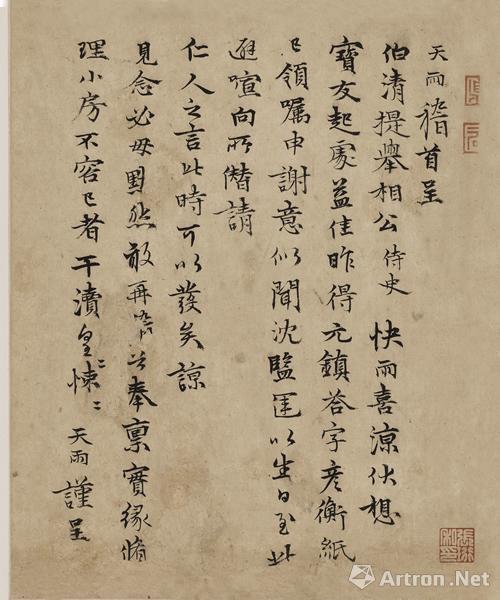 天雨稽首呈
伯清提舉相公侍史 快雨喜涼伏想
寶友起處益佳昨得元鎮答字彥衡紙
已領囑申謝意似聞沈監匡以生日至此
避喧向所僭請
仁人之言此時可以發矣諒
見念必毋罪然敢再
奉稟實緣脩
理小房不容已者干瀆皇〻悚〻
天雨謹呈
Artron.Net